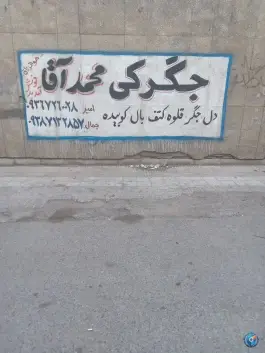 جگرکی محمد آقا
دل جگر قلوه کتف بال کوبیده
امیر ۰۹۳۶۷۷۲۶۰۲۸
جمالی ۰۹۳۸۷۱۳۲۸۵۷